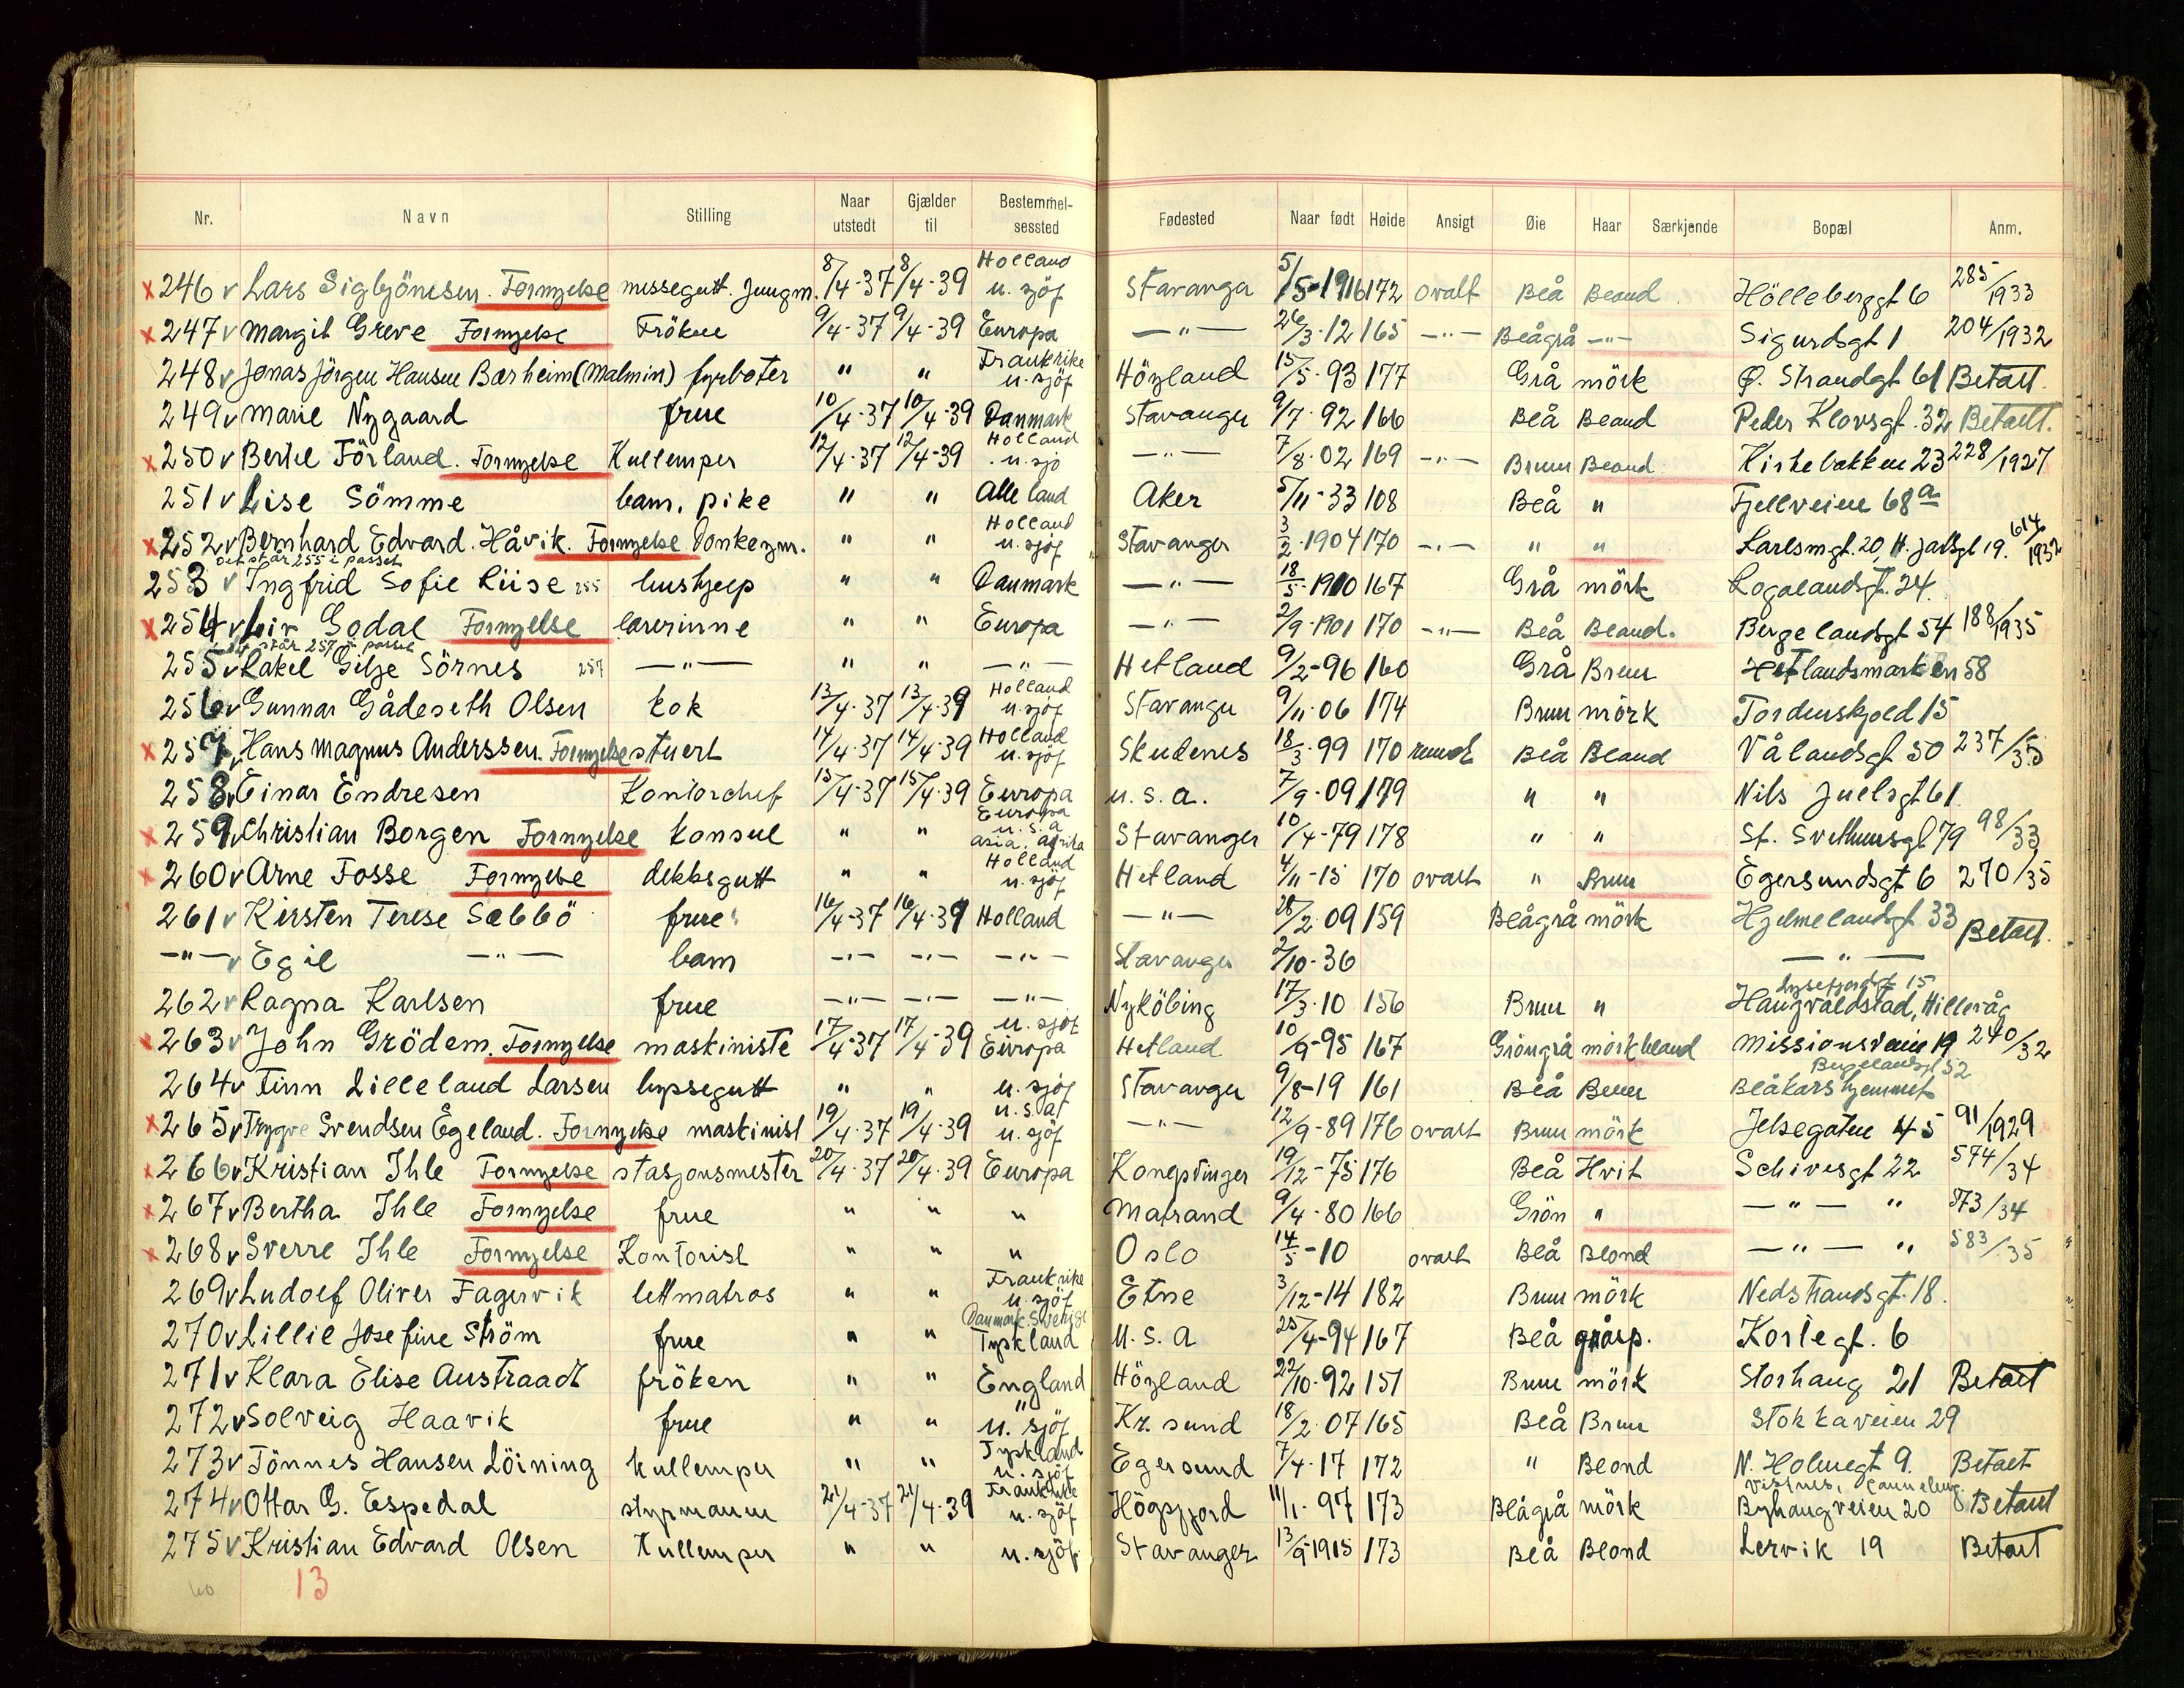 Nr. Navn Stilling Naar utstedt Gjælder til Bestemmelsessted Fødested Naar født Høide Ansigt Øie Haar Særkjende Bopæl Anm.
x 246 v Lars Sigbjörnsen. Fornyelse messegutt. Jungm. 8/4-37 8/4-39 Holland u. sjöf Stavanger 5/5-1916 172 ovalt Blå Blond Hölleberggt 6 285/1933
x 247 v Margit Greve Fornyelse Fröken 9/4-37 9/4-39 Europa —"— 26/3-12 165 —"— Blågrå —"— Sigurdsgt 1 204/1932
248 v Jonas Jörgen Hansen Bærheim (Malmin) fyrböter " " Frankrike u. sjöf Höyland 15/5-93 177 Grå mörk Ø. Strandgt 61 Betalt.
249 v Marie Nygaard frue 10/4-37 10/4-39 Danmark Stavanger 9/7-92 166 Blå Blond Peder Klowsgt. 32 Betalt.
x 250 v Bertil Förland. Fornyelse Kullemper 12/4-37 12/4-39 Holland u. sjö —"— 7/8-02 169 —"— Brun Blond Kirkebakken 23 228/1927
251 v Lise Sömme barn, pike " " Alle land Aker 5/11-33 108 Blå " Fjellveien 68a
x 252 v Bernhard Edvard. Håvik. Fornyelse Donkeym. " " Holland u. sjöf Stavanger 3/2-1904 170 —"— " " Karlsmgt. 20, H. Jarlsgt 19. 614/1932
det står 255 i passet
253 v Ingfrid Sofie Riise 255 hushjelp " " Danmark —"— 18/5-1910 167 Grå mörk Rogalandsgt. 24
x 254 v Liv Godal Fornyelse lærerinne " " Europa —"— 2/9-1901 170 —"— Blå Blond. Bergelandsgt 54 188/1935
står 257 i passet
255 v Rakel Gilje Sörnes 257 —"— " " —"— Hetland 9/2-96 160 Grå Brun Hetlandsmarken 58
256 v Gunnar Gådeseth Olsen kok 13/4-37 13/4-39 Holland u. sjöf Stavanger 9/11-06 174 Brun mörk Tordenskjold 15
x 257 v Hans Magnus Anderssen. Fornyelse stuert 14/4-37 14/4-39 Holland u. sjöf Skudenes 18/3-99 170 rundt Blå Blond Vålandsgt 50 237/35
258 v Einar Endresen Kontorchef 15/4-37 15/4-39 Europa U.S.A. 7/9-09 179 " " Nils Juelsgt 61
x 259 v Christian Borgen Fornyelse konsul " " Europa u.s.a asia, afrika Stavanger 10/4-79 178 " " St. Svithunsgt 79 98/33
x 260 v Arne Fosse Fornyelse dekksgutt " " Holland u. sjöf Hetland 4/11-15 170 ovalt " Brun Egersundsgt 6 270/35
261 v Kirsten Terese Sæbbö frue 16/4-37 16/4-39 Holland —"— 28/2-09 159 Blågrå mörk Hjelmelandsgt 33 Betalt.
—"— v Egil —"— barn —"— —"— —"— Stavanger 2/10-36 —"—
262 v Ragna Karlsen frue —"— —"— —"— Nyköbing 17/3-10 156 Brun " Lysefjordgt 15 Haugvaldstad, Hillevåg
x 263 v John Grödem. Fornyelse maskiniste 17/4-37 17/4-39 u. sjöf Europa Hetland 10/9-95 167 Gröngrå mörkblond Missionsveien 19 240/32
264 v Finn Lilleland Larsen byssegutt " " u. sjöf Stavanger 9/8-19 161 Blå Brun Bergelandsgt 52 Blåkorshjemmet
x 265 v Trygve Svendsen Egeland. Fornyelse maskinist 19/4-37 19/4-39 u.s.a u. sjöf —"— 12/9-89 176 ovalt Brun mörk Jelsegaten 45 91/1929
x 266 v Kristian Ihle Fornyelse stasjonsmester 20/4-37 20/4-39 Europa Kongsvinger 19/12-75 176 Blå Hvit Schivesgt 22 574/34
x 267 v Bertha Ihle Fornyelse frue " " " Matrand 9/4-80 166 Grön " —"— " 573/34
x 268 v Sverre Ihle Fornyelse Kontorist " " " Oslo 14/5-10 ovalt Blå Blond —"— " 583/35
269 v Ludolf Oliver Fagervik lettmatros " " Frankrike u. sjöf Etne 3/12-14 182 Brun mörk Nedstrandsgt. 18.
270 v Lillie Josefine Ström frue " " Danmark. Sverige Tyskland U.S.A 25/4-94 167 Blå gråsp. Kortegt. 6
271 v Klara Elise Austraadt fröken " " England Höyland 22/10-92 151 Brun mörk Storhaug 21 Betalt
272 v Solveig Haavik frue " " " u. sjöf Kr. sund 18/2-07 165 Blå Brun Stokkaveien 29
273 v Tönnes Hansen Löining kullemper " " Tyskland u. sjöf Egersund 7/4-17 172 " Blond N. Holmegt 9. Betalt
274 v Ottar G. Espedal styrmann 21/4-37 21/4-39 Frankrike u. sjöf Högsfjord 11/1-97 173 Blågrå mörk Byhaugveien 20 Betalt
275 v Kristian Edvard Olsen Kullemper " " u. sjöf. Stavanger 13/9-1915 173 Blå Blond Lervik 19 Betalt
13